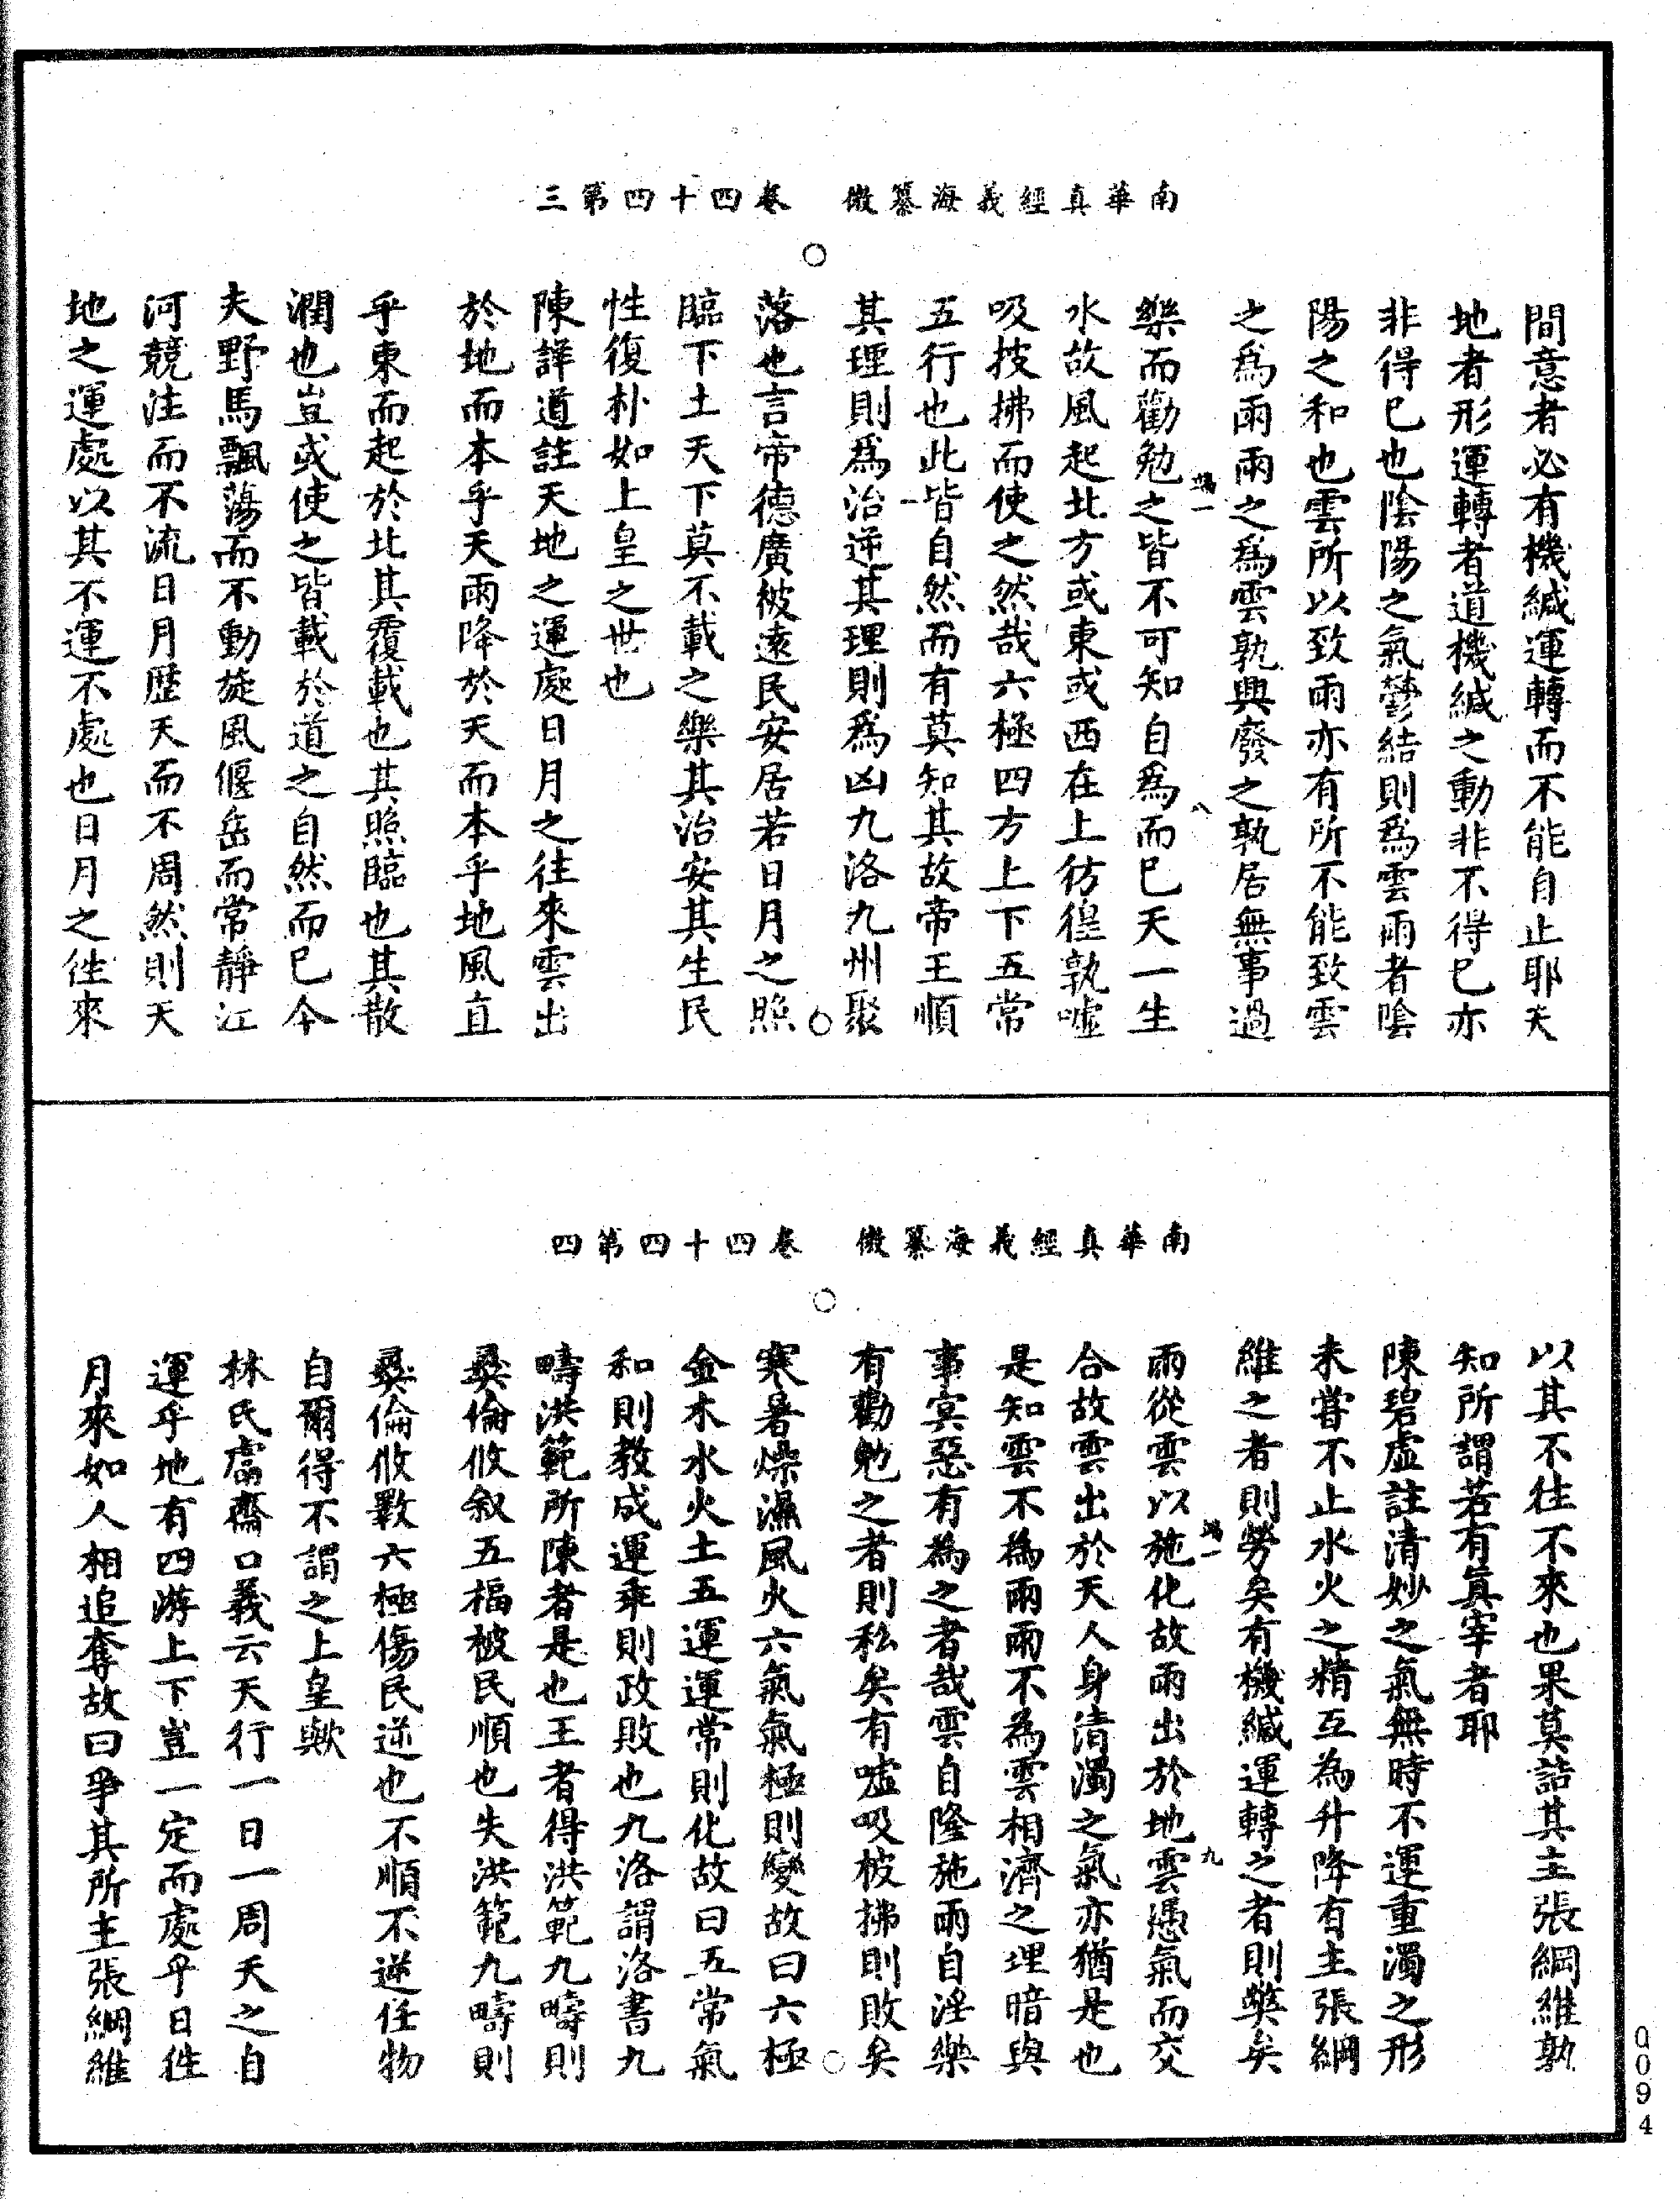 南華真經義海纂微　卷四十四第三
間意者必有機緘運轉而不能自止耶天
地者形運轉者道機緘之動非不得已亦
非得已也陰陽之氣鬱結則爲雲雨者陰
陽之和也雲所以致雨亦有所不能致雲
之爲雨雨之爲雲孰興廢之孰居無事過
樂而勸勉之皆不可知自爲而已天一生
水故風起北方或東或西在上彷徨孰噓
吸披拂而使之然哉六極四方上下五常
五行也此皆自然而有莫知其故帝王順
其理則爲治逆其理則爲凶九洛九州聚
落也言帝德廣被遠民安居若日月之照
臨下土天下莫不載之樂其治安其生民
性復朴如上皇之世也
陳詳道註天地之運處日月之往來雲出
於地而本乎天雨降於天而本乎地風直
乎東而起於北其覆載也其照臨也其散
潤也豈或使之皆載於道之自然而已今
夫野馬飄蕩而不動旋風偃岳而常靜江
河競注而不流日月歷天而不周然則天
地之運處以其不運不處也日月之往來
南華真經義海纂微　卷四十四第四
以其不往不來也果莫詰其主張綱維孰
知所謂若有真宰者耶
陳碧虛註清妙之氣無時不運重濁之形
未嘗不止水火之精互為升降有主張綱
維之者則勞矣有機緘運轉之者則弊矣
雨從雲以施化故雨出於地雲憑氣而交
合故雲出於天人身清濁之氣亦猶是也
是知雲不為雨雨不為雲相濟之理暗與
事冥惡有為之者哉雲自隆施雨自淫樂
有勸勉之者則私矣有噓吸披拂則敗矣
寒暑燥濕風火六氣氣極則變故曰六極
金木水火土五運運常則化故曰五常氣
和則教成運乖則政敗也九洛謂洛書九
疇洪範所陳者是也王者得洪範九疇則
彝倫攸叙五福被民順也失洪範九疇則
彝倫攸斁六極傷民逆也不順不逆任物
自爾得不謂之上皇歟
林氏鬳齋口義云天行一日一周天之自
運乎地有四游上下豈一定而處乎日往
月來如人相追奪故曰爭其所主張綱維
鳴一
八
鳴一
九
Q094